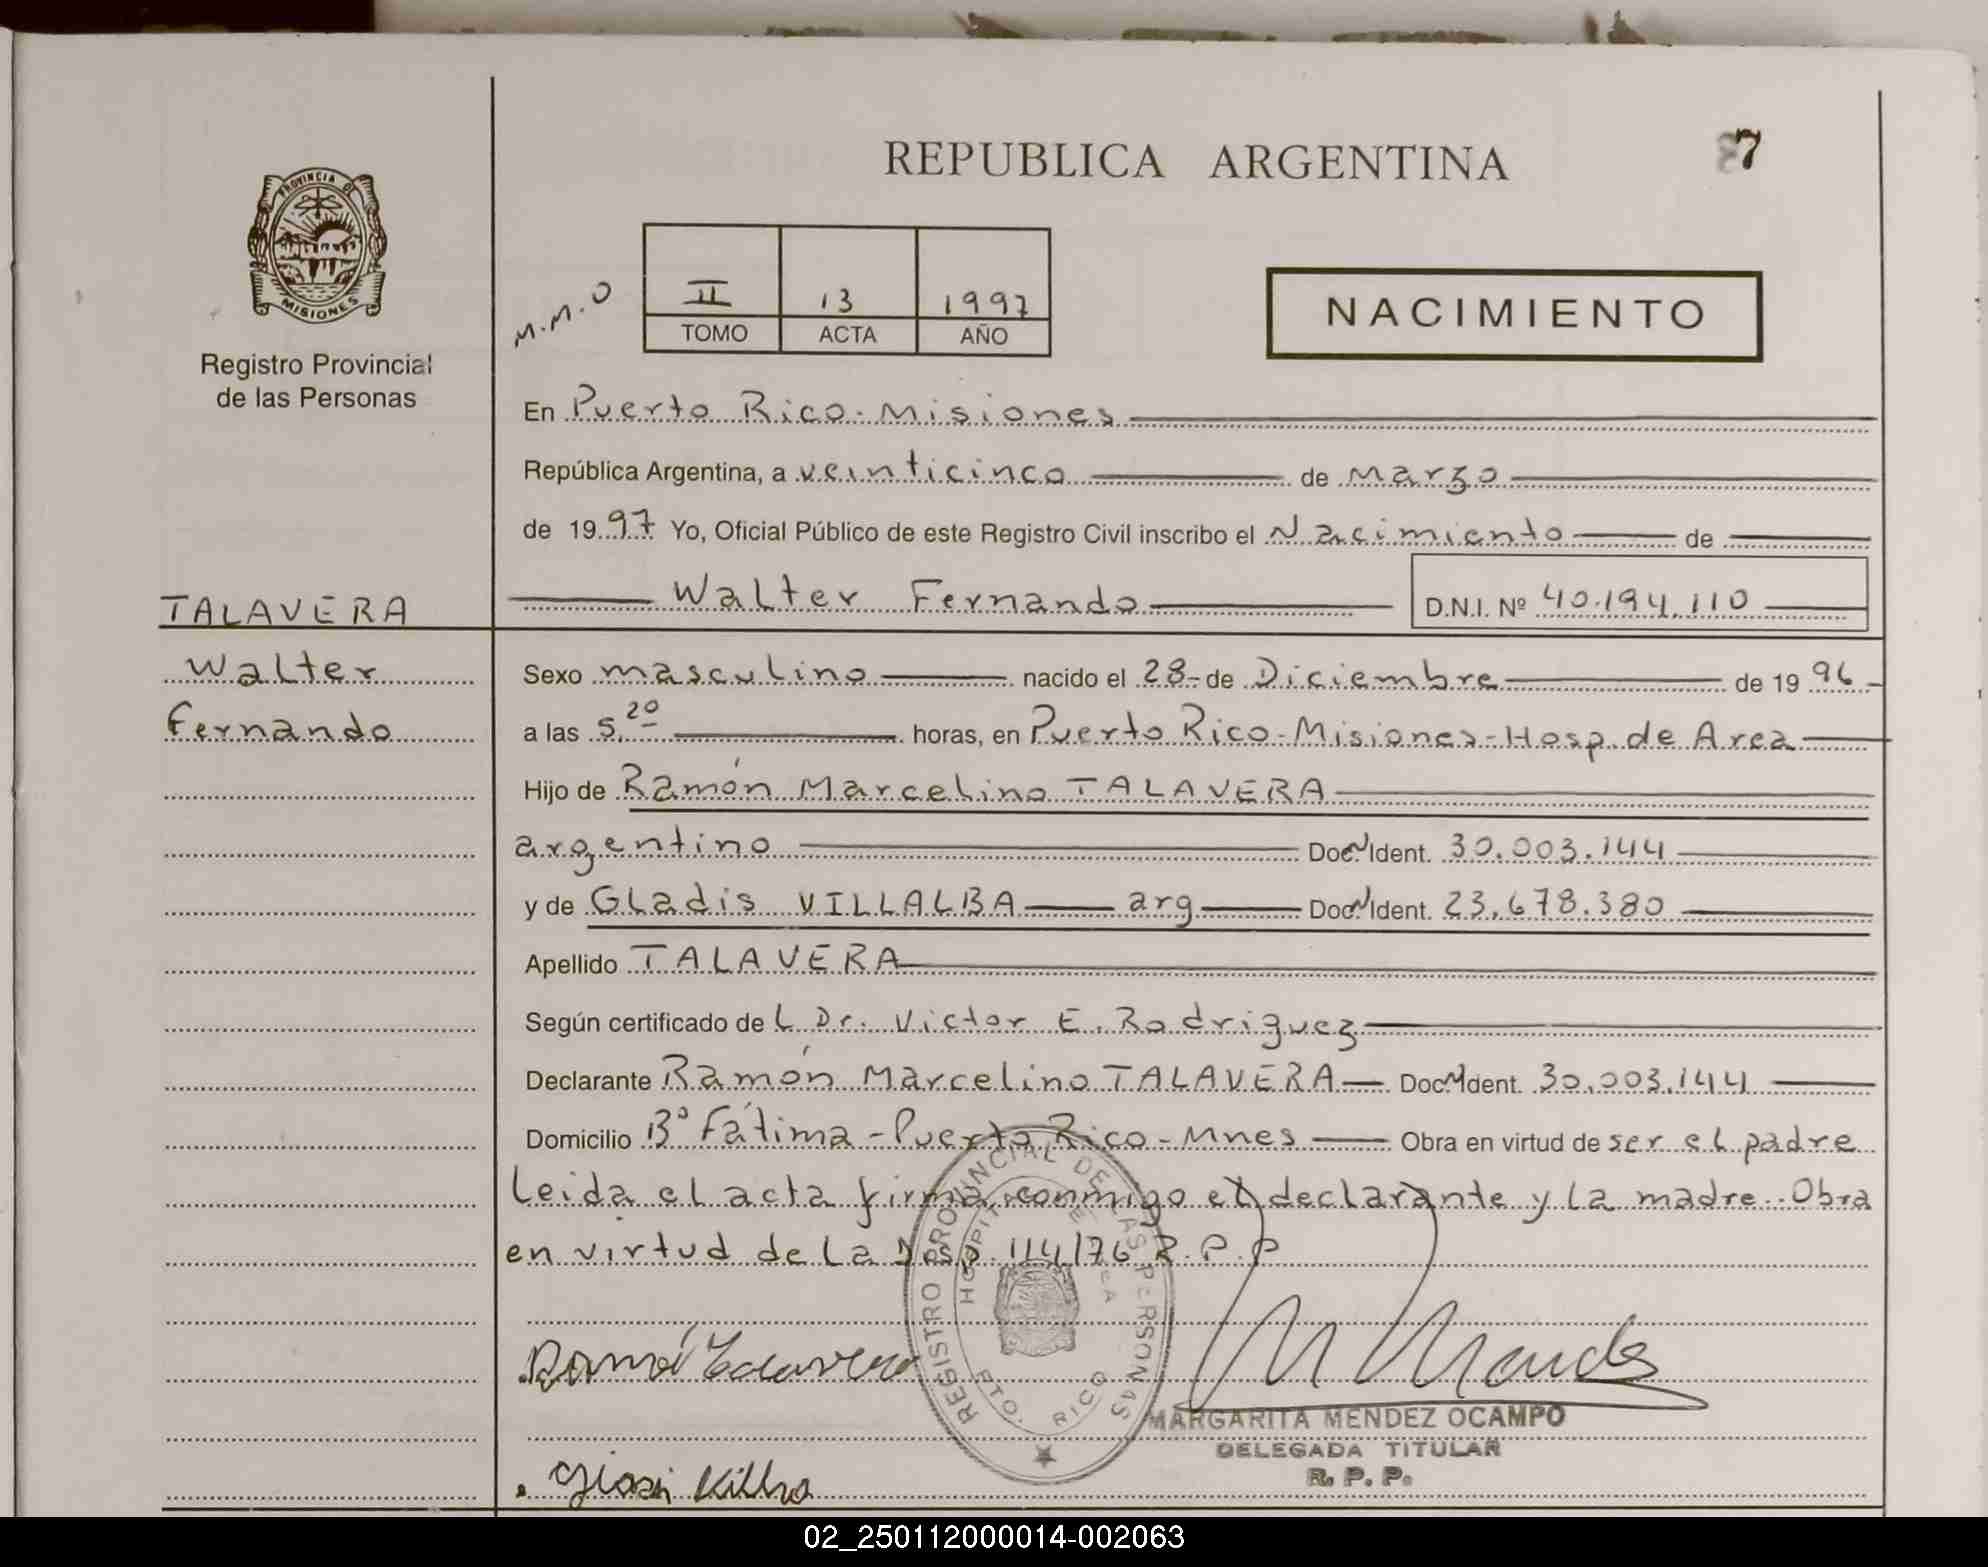 REPUBLICA ARGENTINA
7
PROVINCIA DE
MISIONES
Registro Provincial
de las Personas
M.M.O
II 13 1997
TOMO ACTA AÑO
NACIMIENTO
En Puerto Rico - Misiones
República Argentina, a veinticinco de Marzo
de 1997 Yo, Oficial Público de este Registro Civil inscribo el Nacimiento de
Walter Fernando D.N.I. Nº 40.194.110
TALAVERA
Walter
Fernando
Sexo masculino nacido el 28- de Diciembre de 19 96-
a las 5,20 horas, en Puerto Rico - Misiones - Hosp. de Area
Hijo de Ramón Marcelino TALAVERA
argentino Doc. Ident. 30.003.144
y de Gladis VILLALBA arg Doc. Ident. 23.678.380
Apellido TALAVERA
Según certificado de L Dr. Victor E. Rodriguez
Declarante Ramón Marcelino TALAVERA Doc. Ident. 30.003.144
Domicilio Bº Fátima - Puerto Rico - Mnes Obra en virtud de ser el padre
Leida el acta firma conmigo el declarante y la madre. Obra
en virtud de la Disp. 114/76 R.P.P
REGISTRO PROVINCIAL DE LAS PERSONAS
HOSPITAL DE AREA
PTO. RICO
Ramón Talavera
M Mendez
MARGARITA MENDEZ OCAMPO
DELEGADA TITULAR
R. P. P.
02_250112000014-002063